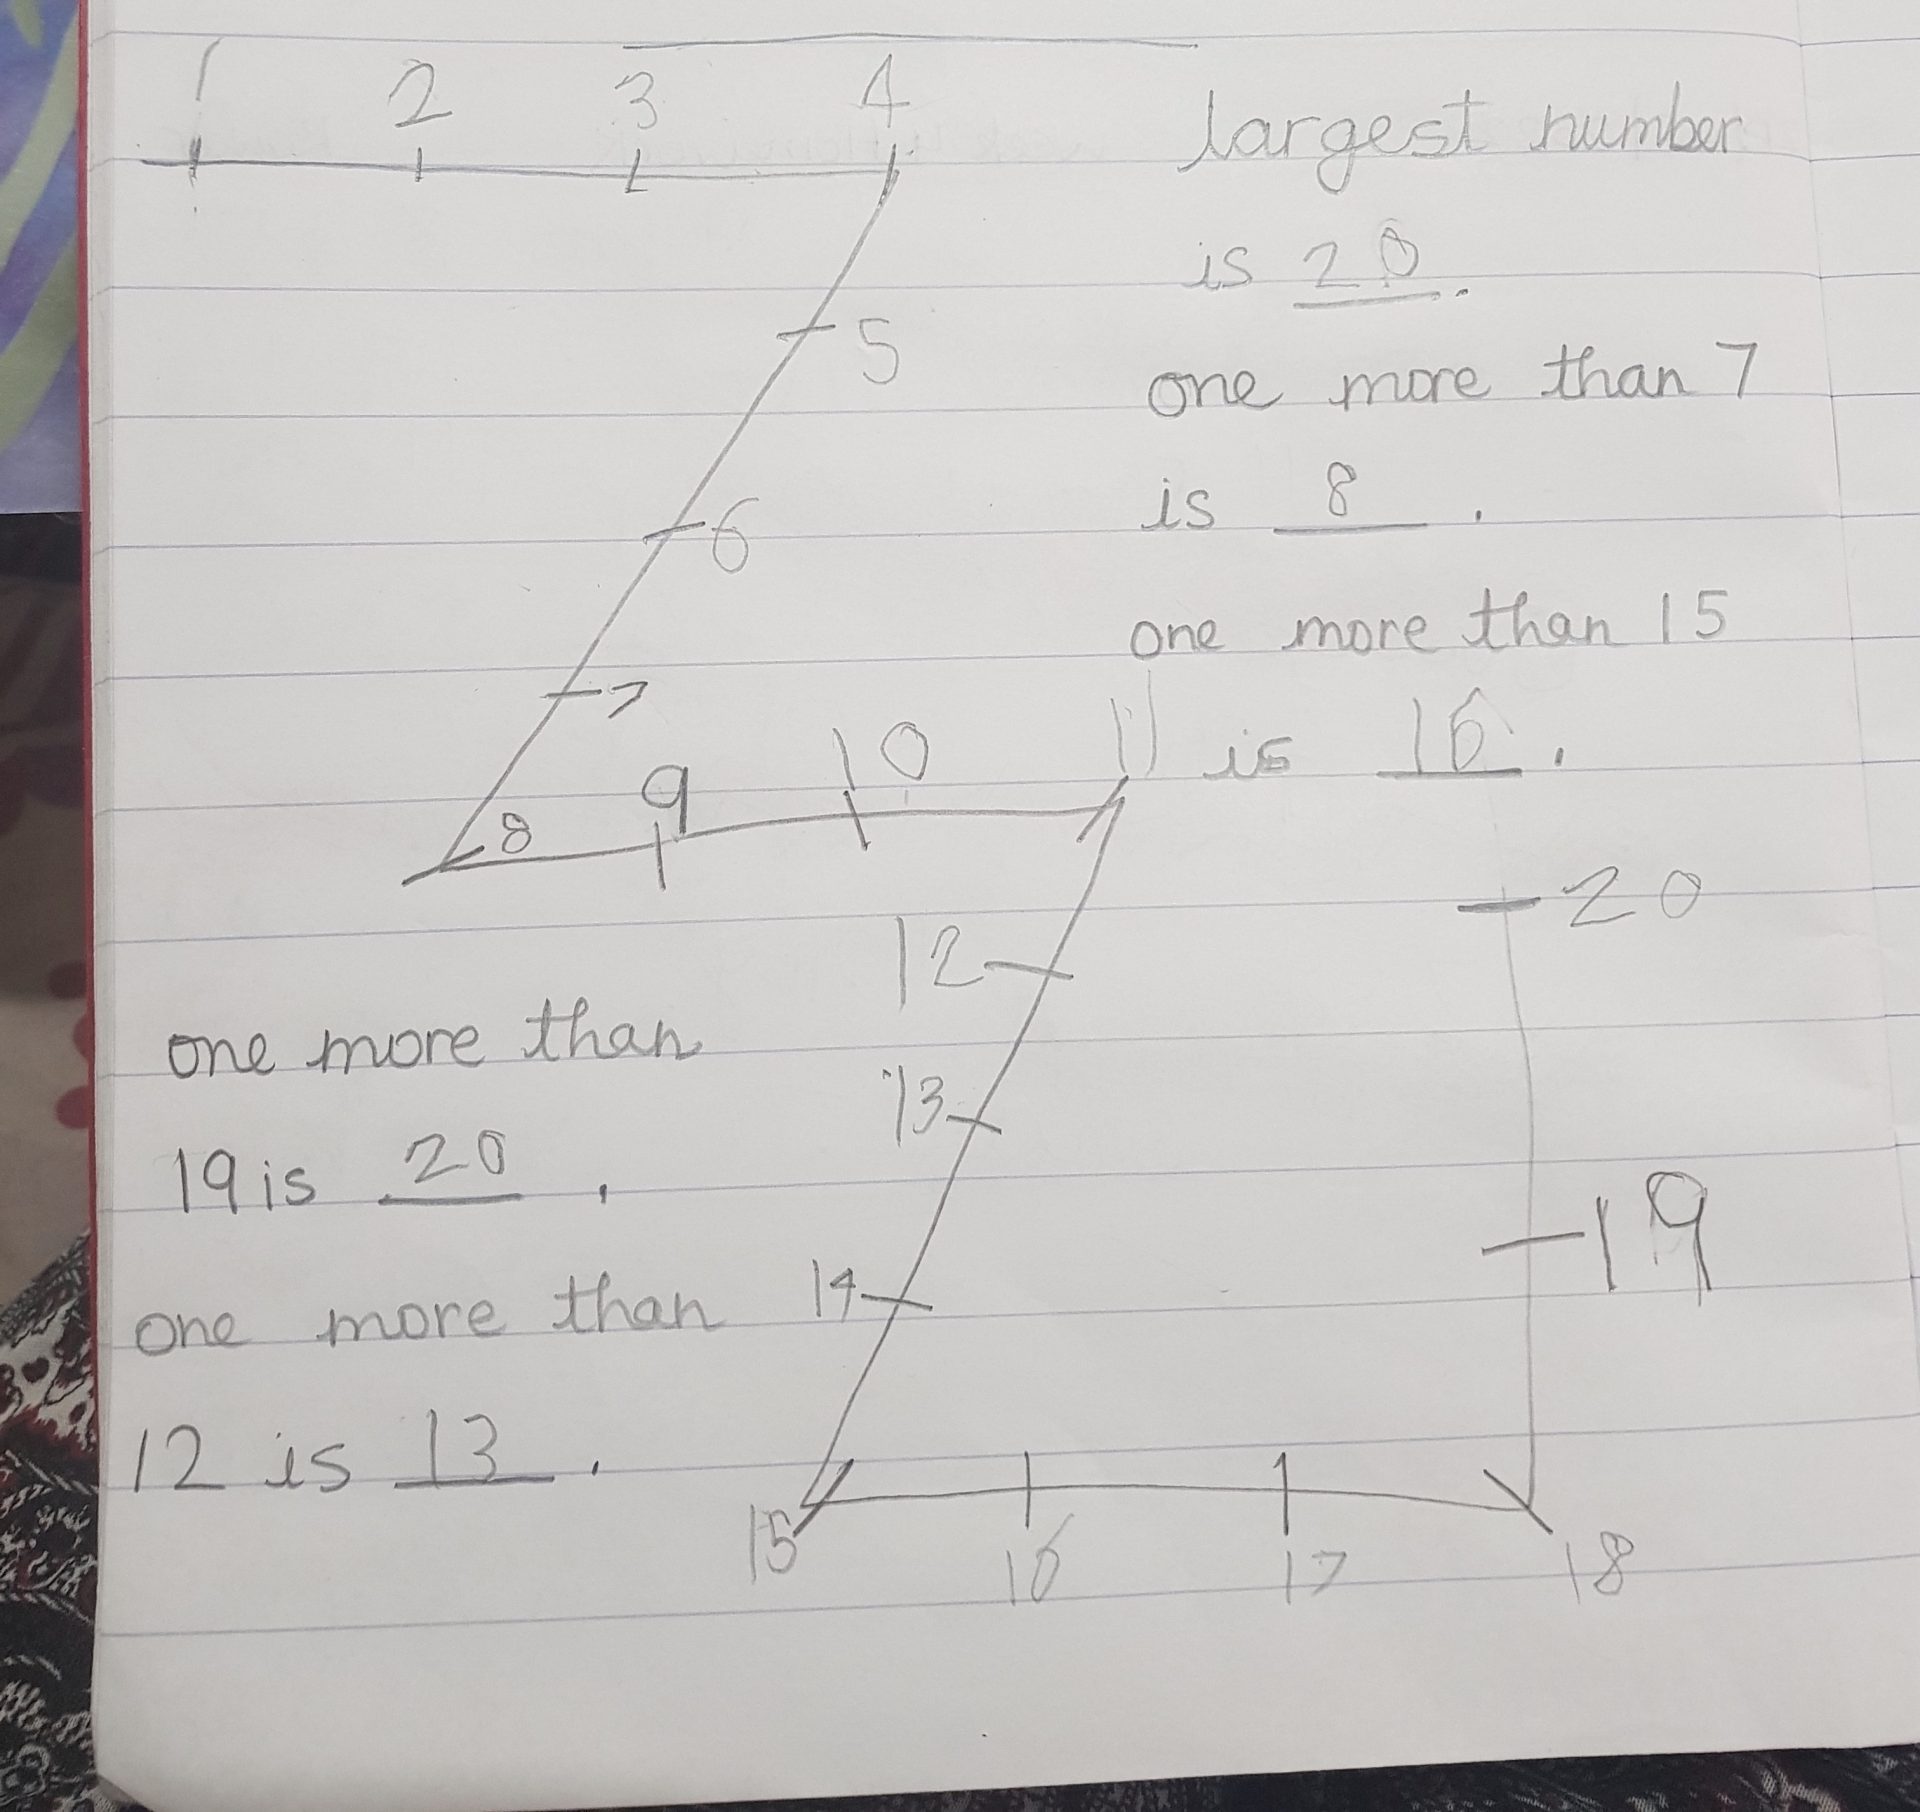 1 2 3 4
largest number
is 20.
5
one more than 7
is 8.
6
one more than 15
7
is 16.
8 9 10 11
20
12
one more than
13
19 is 20.
19
one more than
14
12 is 13.
15 16 17 18